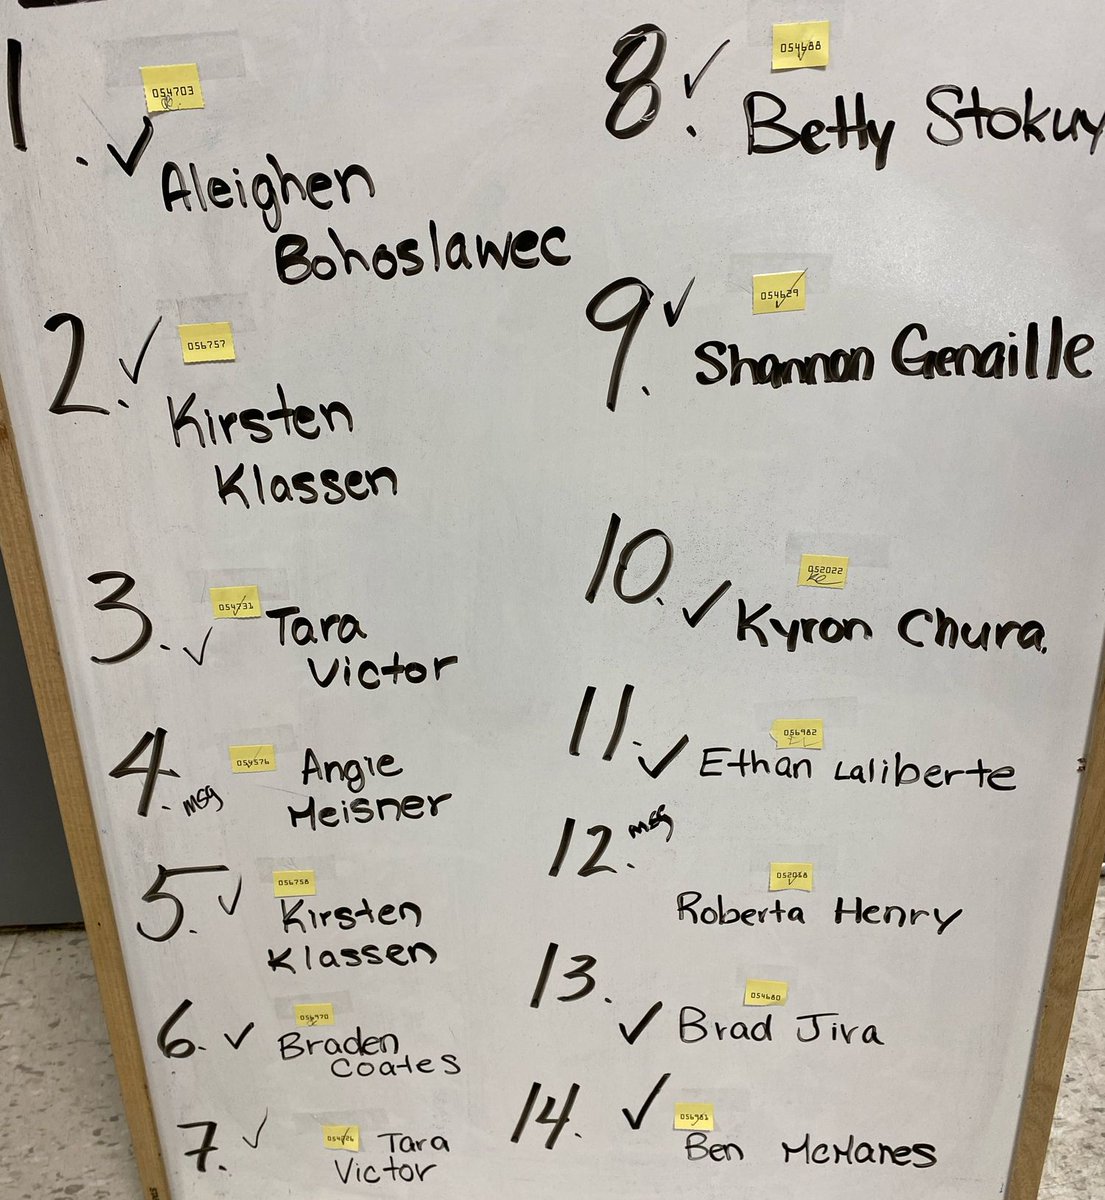 1.
054703
Aleighen
Bohoslawec
2.
056757
Kirsten
Klassen
3.
054731
Tara
Victor
4.
msg
054576
Angie
Meisner
5.
056758
Kirsten
Klassen
6.
056970
Braden
Coates
7.
054726
Tara
Victor
8.
054688
Betty Stokuy
9.
054629
Shannon Genaille
10.
052022
Kyron Chura.
11.
056982
Ethan Laliberte
12.
msg
Roberta Henry
13.
054680
Brad Jira
14.
056981
Ben McManes